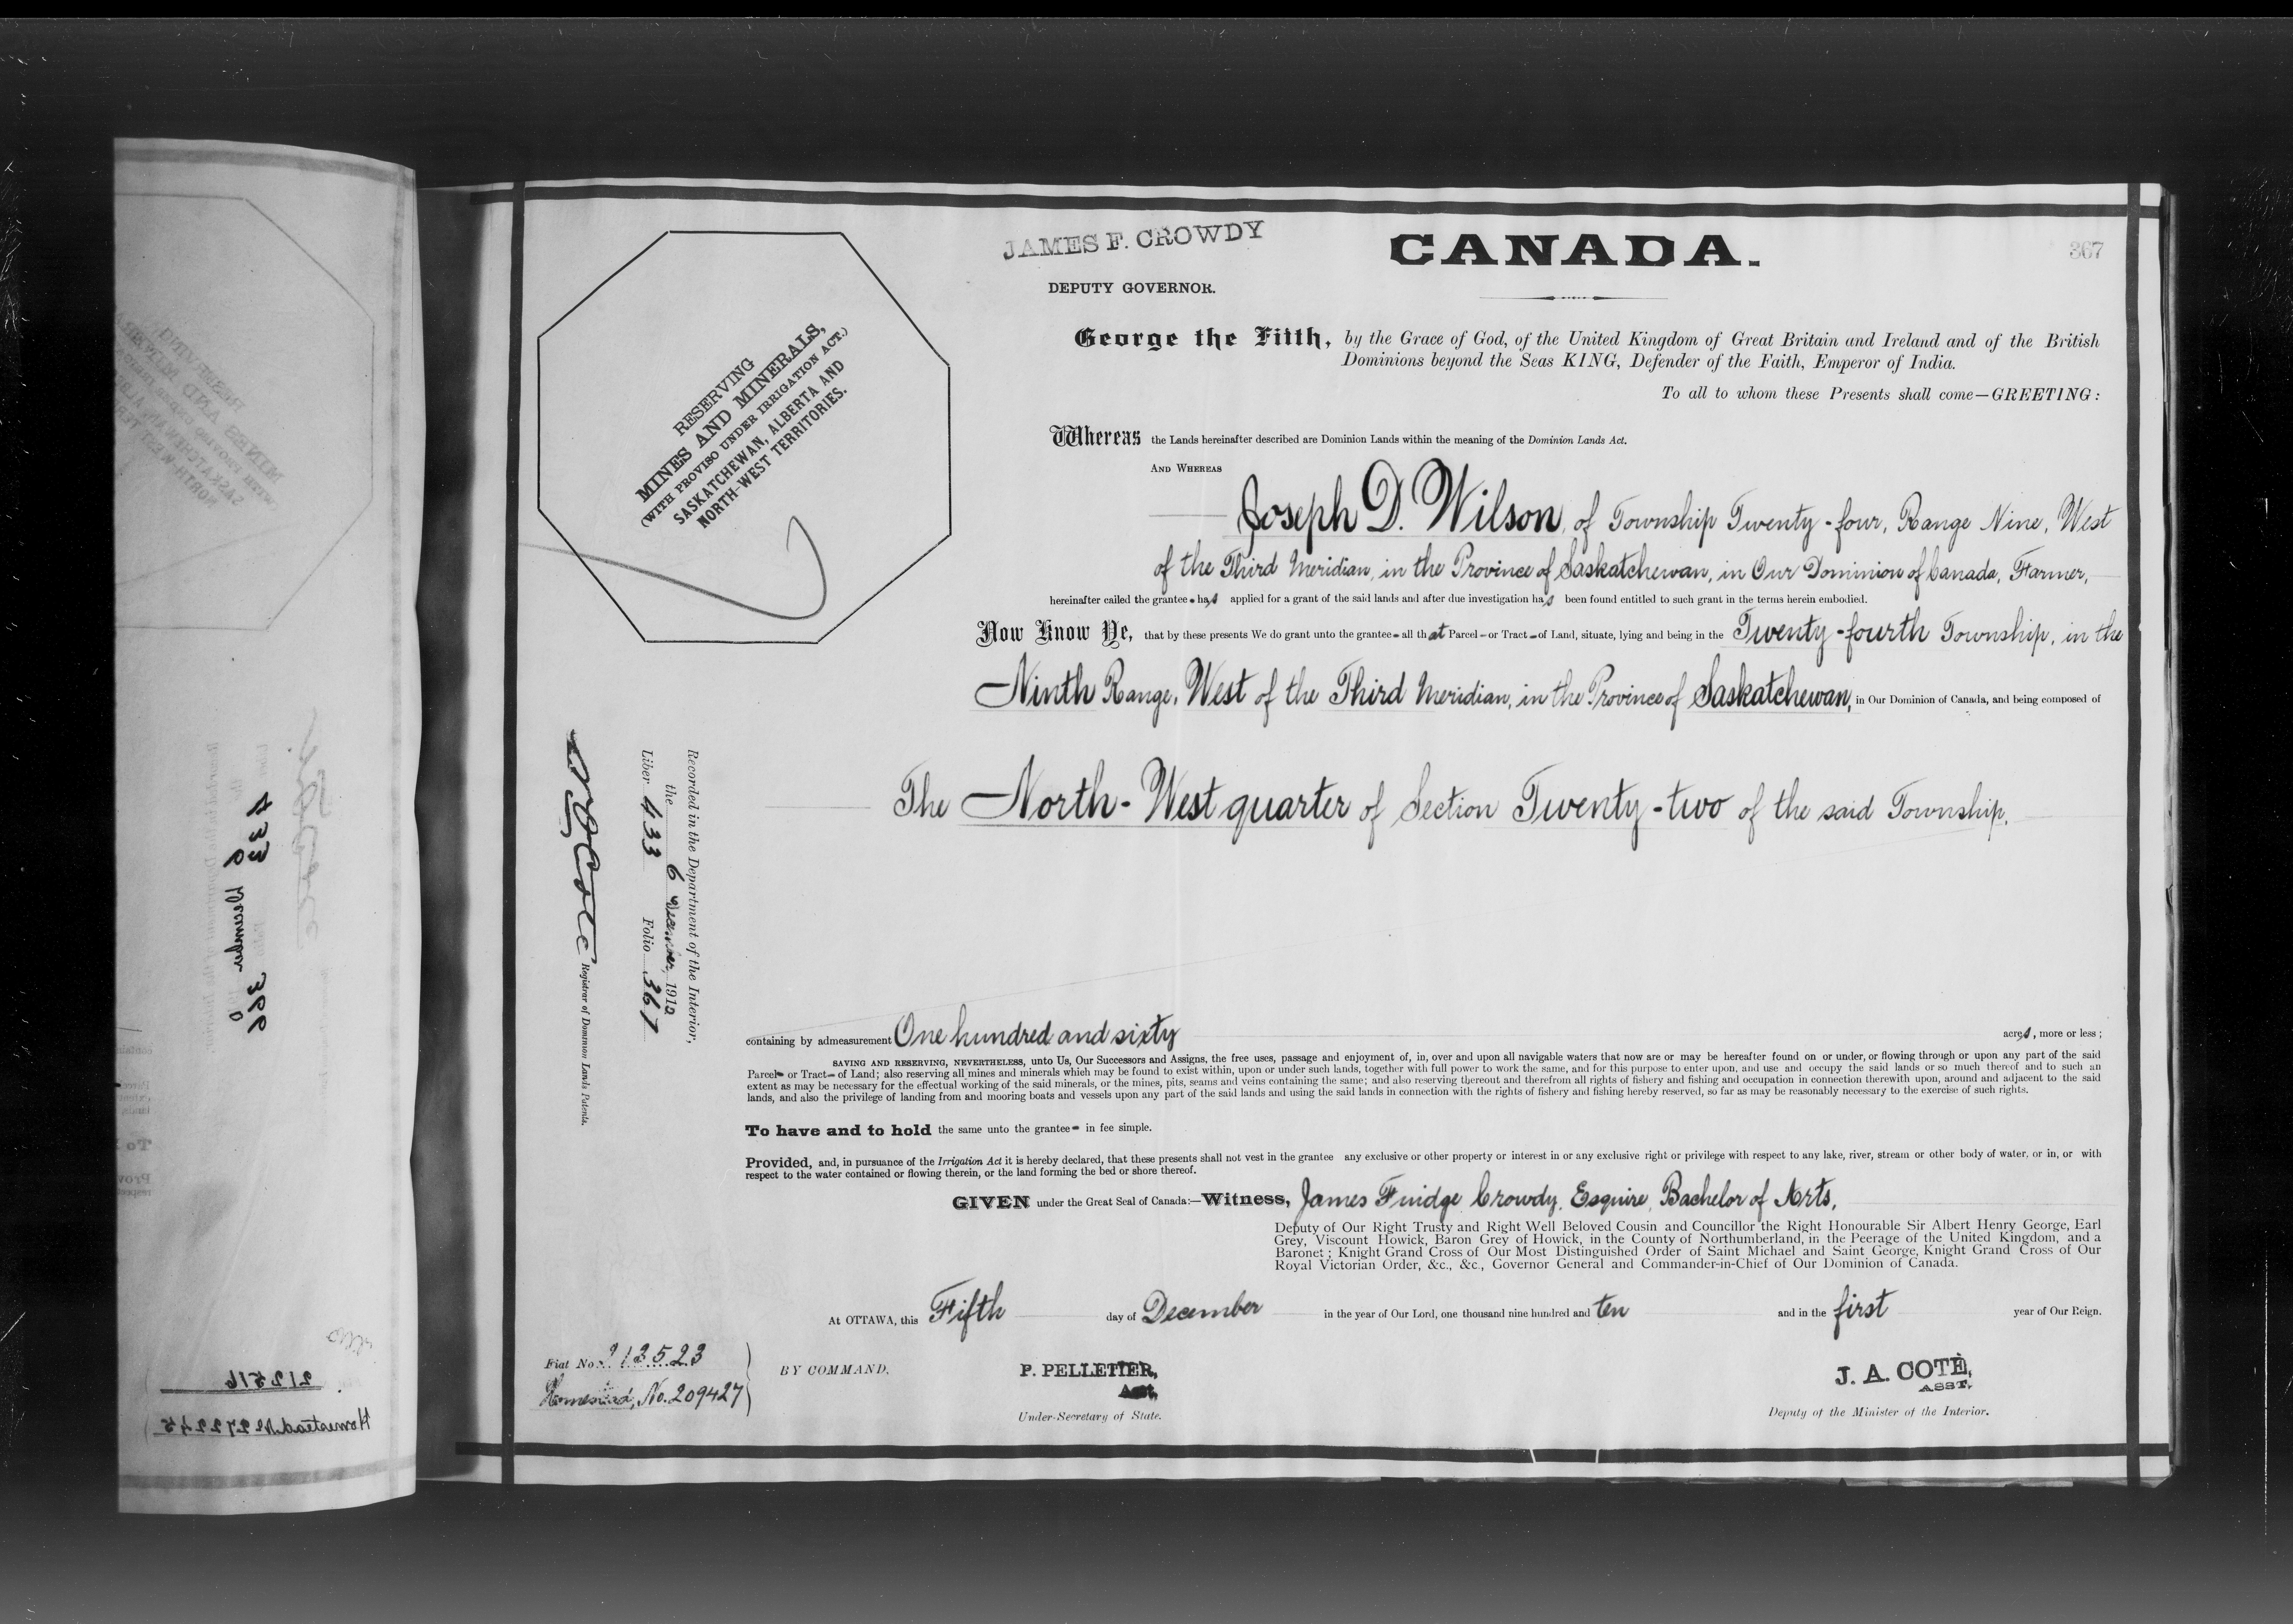 JAMES F. CROWDY
CANADA.
367
DEPUTY GOVERNOR.
George the Fifth, by the Grace of God, of the United Kingdom of Great Britain and Ireland and of the British
Dominions beyond the Seas KING, Defender of the Faith, Emperor of India.
To all to whom these Presents shall come—GREETING:
RESERVING
MINES AND MINERALS,
(WITH PROVISO UNDER IRRIGATION ACT.)
SASKATCHEWAN, ALBERTA AND
NORTH-WEST TERRITORIES.
Whereas the Lands hereinafter described are Dominion Lands within the meaning of the Dominion Lands Act.
AND WHEREAS
Joseph D. Wilson, of Township Twenty-four, Range Nine, West
of the Third Meridian, in the Province of Saskatchewan, in Our Dominion of Canada, Farmer,
hereinafter called the grantee has applied for a grant of the said lands and after due investigation has been found entitled to such grant in the terms herein embodied.
Now Know Ye, that by these presents We do grant unto the grantee all that Parcel or Tract of Land, situate, lying and being in the Twenty-fourth Township, in the
Ninth Range, West of the Third Meridian, in the Province of Saskatchewan, in Our Dominion of Canada, and being composed of
The North-West quarter of Section Twenty-two of the said Township.
Recorded in the Department of the Interior,
the 6 December, 1910
Liber 433 Folio 367
Registrar of Dominion Lands Patents.
containing by admeasurement One hundred and sixty acres, more or less;
SAVING AND RESERVING, NEVERTHELESS, unto Us, Our Successors and Assigns, the free uses, passage and enjoyment of, in, over and upon all navigable waters that now are or may be hereafter found on or under, or flowing through or upon any part of the said
Parcel or Tract of Land; also reserving all mines and minerals which may be found to exist within, upon or under such lands, together with full power to work the same, and for this purpose to enter upon, and use and occupy the said lands or so much thereof and to such an
extent as may be necessary for the effectual working of the said minerals, or the mines, pits, seams and veins containing the same; and also reserving thereout and therefrom all rights of fishery and fishing and occupation in connection therewith upon, around and adjacent to the said
lands, and also the privilege of landing from and mooring boats and vessels upon any part of the said lands and using the said lands in connection with the rights of fishery and fishing hereby reserved, so far as may be reasonably necessary to the exercise of such rights.
To have and to hold the same unto the grantee in fee simple.
Provided, and, in pursuance of the Irrigation Act it is hereby declared, that these presents shall not vest in the grantee any exclusive or other property or interest in or any exclusive right or privilege with respect to any lake, river, stream or other body of water, or in, or with
respect to the water contained or flowing therein, or the land forming the bed or shore thereof.
GIVEN under the Great Seal of Canada:—Witness, James Fuidge Crowdy, Esquire, Bachelor of Arts,
Deputy of Our Right Trusty and Right Well Beloved Cousin and Councillor the Right Honourable Sir Albert Henry George, Earl
Grey, Viscount Howick, Baron Grey of Howick, in the County of Northumberland, in the Peerage of the United Kingdom, and a
Baronet; Knight Grand Cross of Our Most Distinguished Order of Saint Michael and Saint George, Knight Grand Cross of Our
Royal Victorian Order, &c., &c., Governor General and Commander-in-Chief of Our Dominion of Canada.
At OTTAWA, this Fifth day of December in the year of Our Lord, one thousand nine hundred and ten and in the first year of Our Reign.
Fiat No. 212523
Homestead, No. 209427
BY COMMAND,
P. PELLETIER,
Asst.
Under-Secretary of State.
J. A. COTÉ,
ASST.
Deputy of the Minister of the Interior.
433
December
366
212516
Homestead No 272245